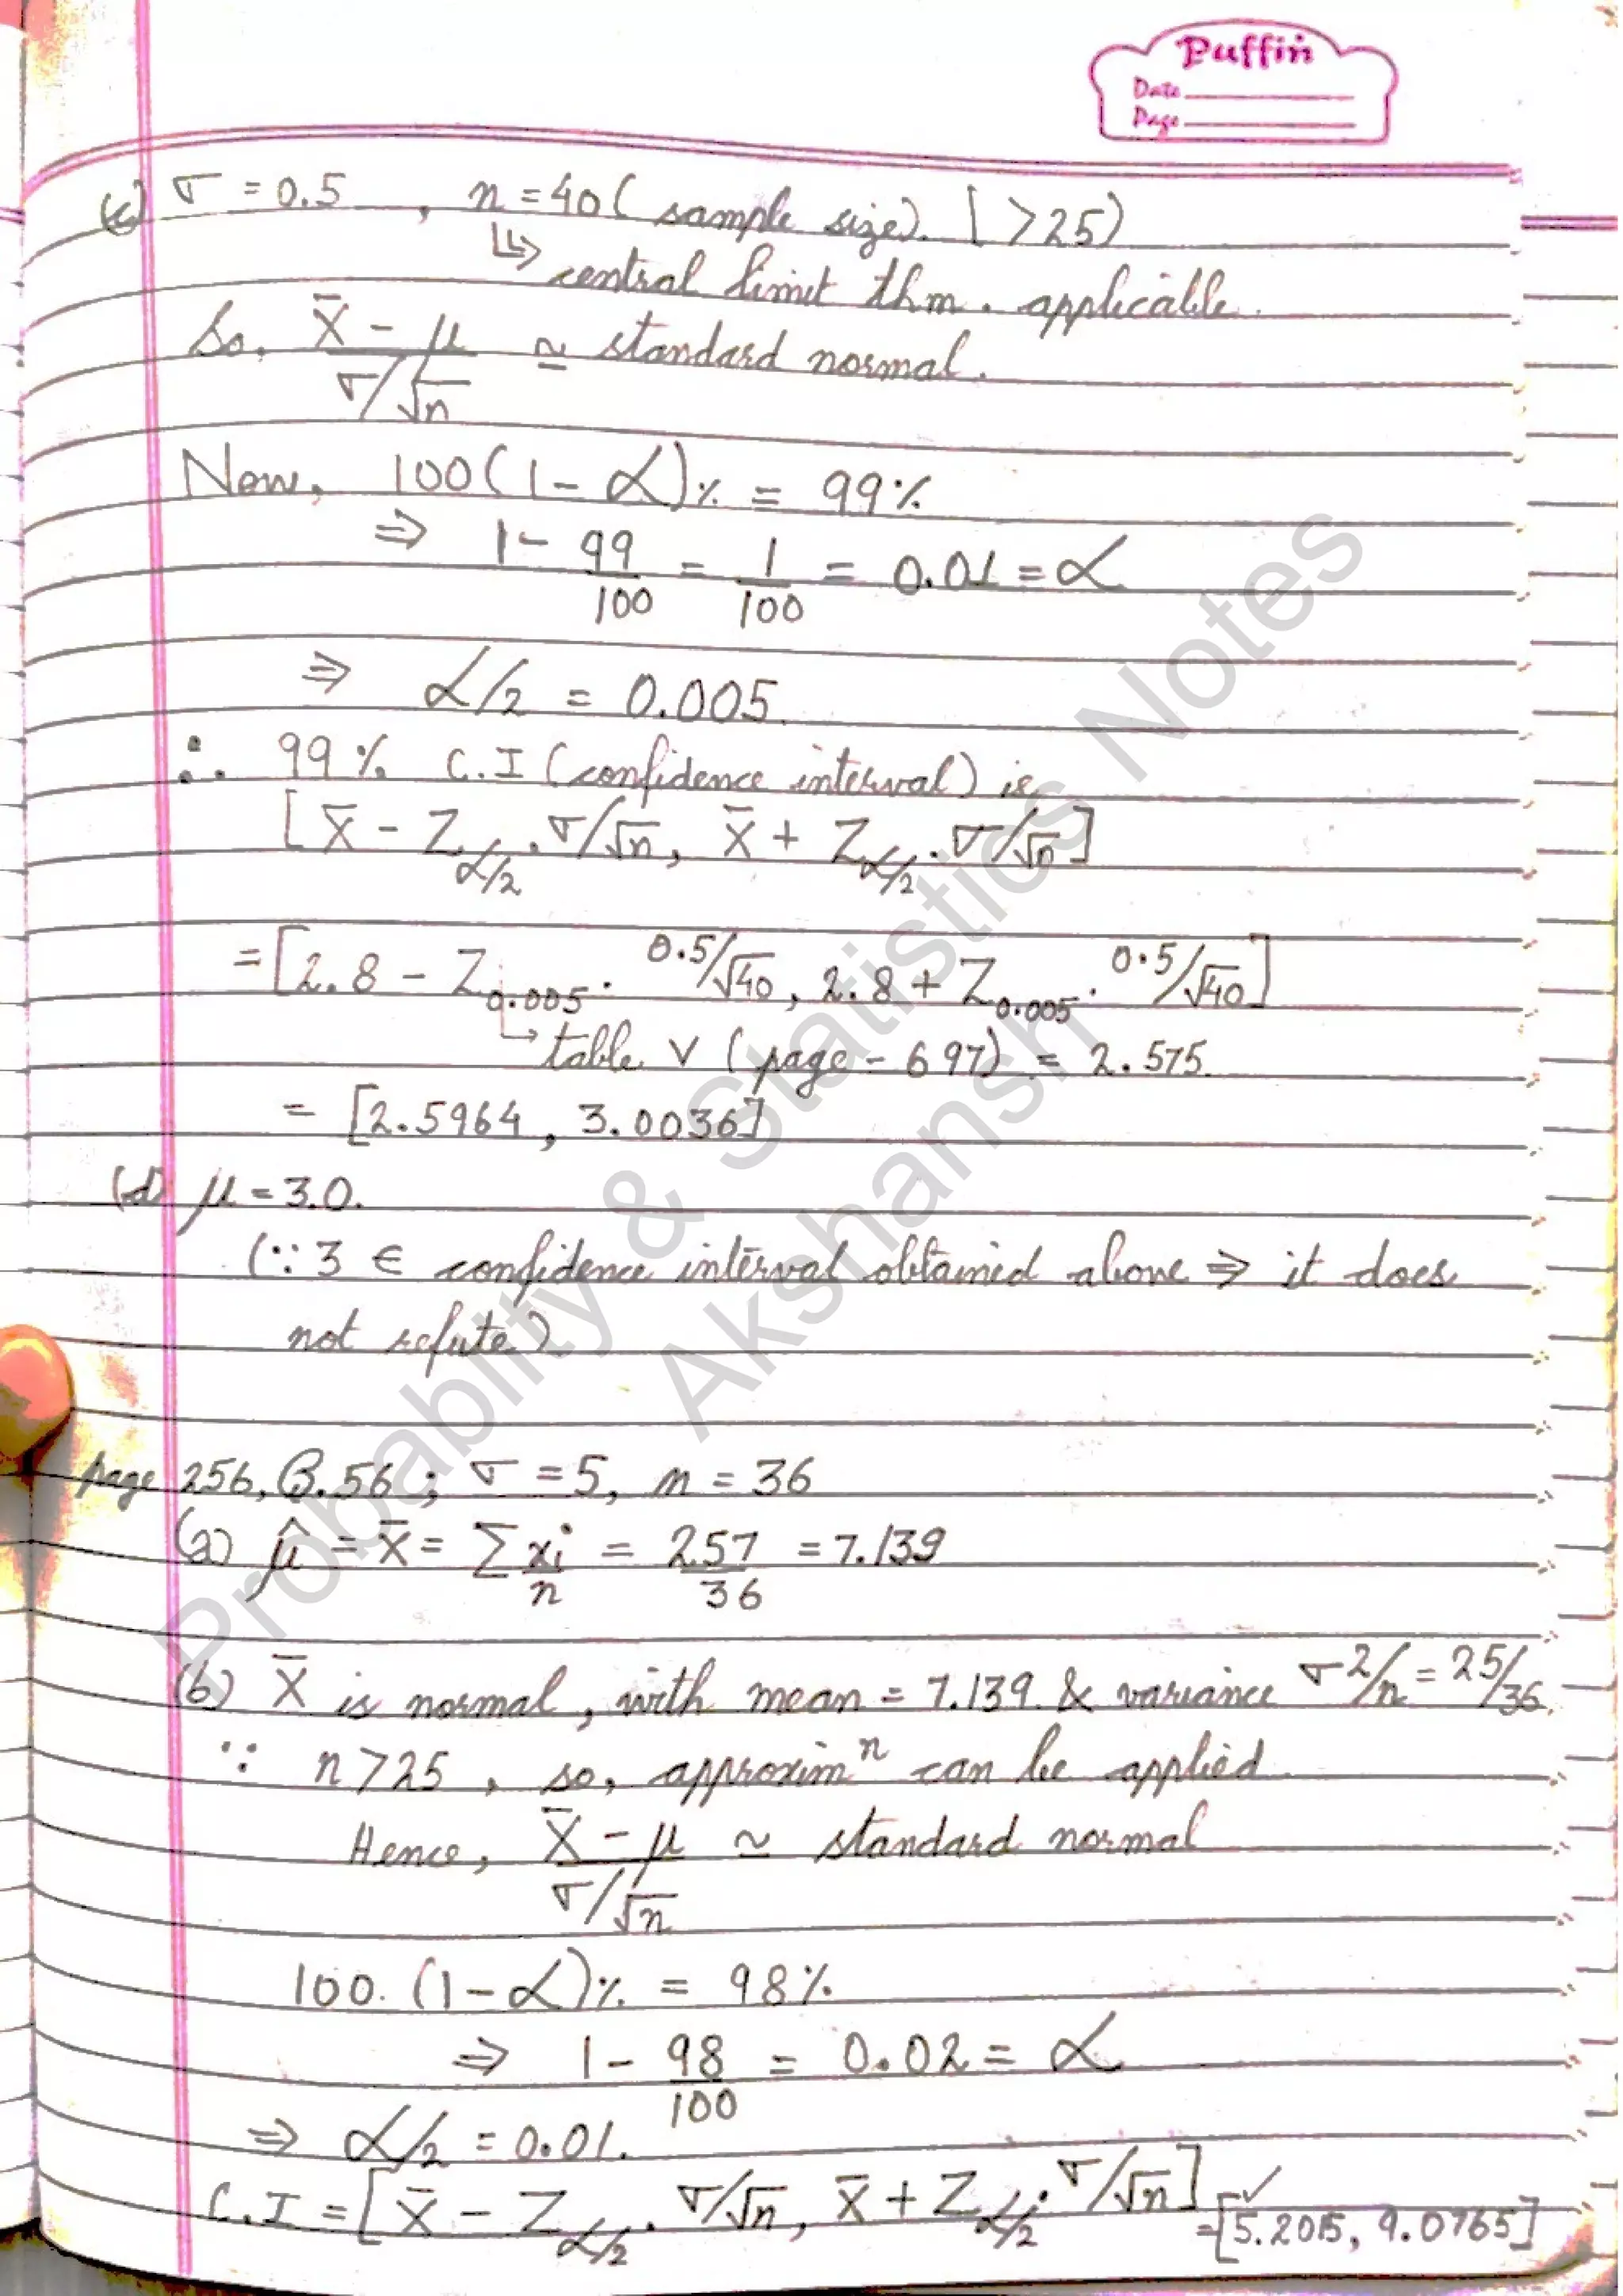 Puffin
Date
Page
(c) σ = 0.5 , n = 40 ( sample size). [ >25)
↳ central limit thm. applicable.
So, X̄ - μ / σ/√n ≃ standard normal.
Now, 100(1-α)% = 99%
⇒ 1 - 99/100 = 1/100 = 0.01 = α
⇒ α/2 = 0.005.
∴ 99% C.I (confidence interval) is
[X̄ - Z_α/2 . σ/√n, X̄ + Z_α/2 . σ/√n]
= [2.8 - Z_0.005 . 0.5/√40, 2.8 + Z_0.005 . 0.5/√40]
↳ table V (page - 697) = 2.575.
= [2.5964, 3.0036]
(d) μ = 3.0.
(∵ 3 ∈ confidence interval obtained above ⇒ it does
not refute)
page 256, Q.56 ; σ = 5, n = 36
(a) μ̂ = X̄ = Σ xi/n = 257/36 = 7.139
(b) X̄ is normal, with mean = 7.139 & variance σ²/n = 25/36.
∵ n > 25 , so, approximⁿ can be applied.
Hence, X̄ - μ / σ/√n ≃ standard normal
100. (1-α)% = 98%
⇒ 1 - 98/100 = 0.02 = α
⇒ α/2 = 0.01.
C.I = [X̄ - Z_α/2 . σ/√n, X̄ + Z_α/2 . σ/√n] = [5.2015, 9.0765] ✓
Probablity & Statistics Notes
Akshansh